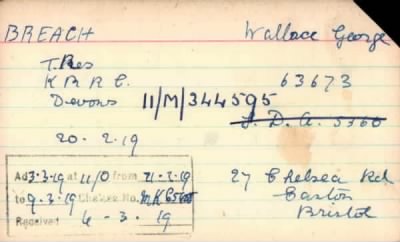 BREACH Wallace George
T. Res
K R R C. 63673
Devons 11/M/344595
S. D. A. 5360
20. 2. 19
Ad 3-3-19 at 11/0 from 21-2-19
to 9-3-19 Cheque No. MK
Received 4-3-19
27 Chelsea Rd
Easton
Bristol